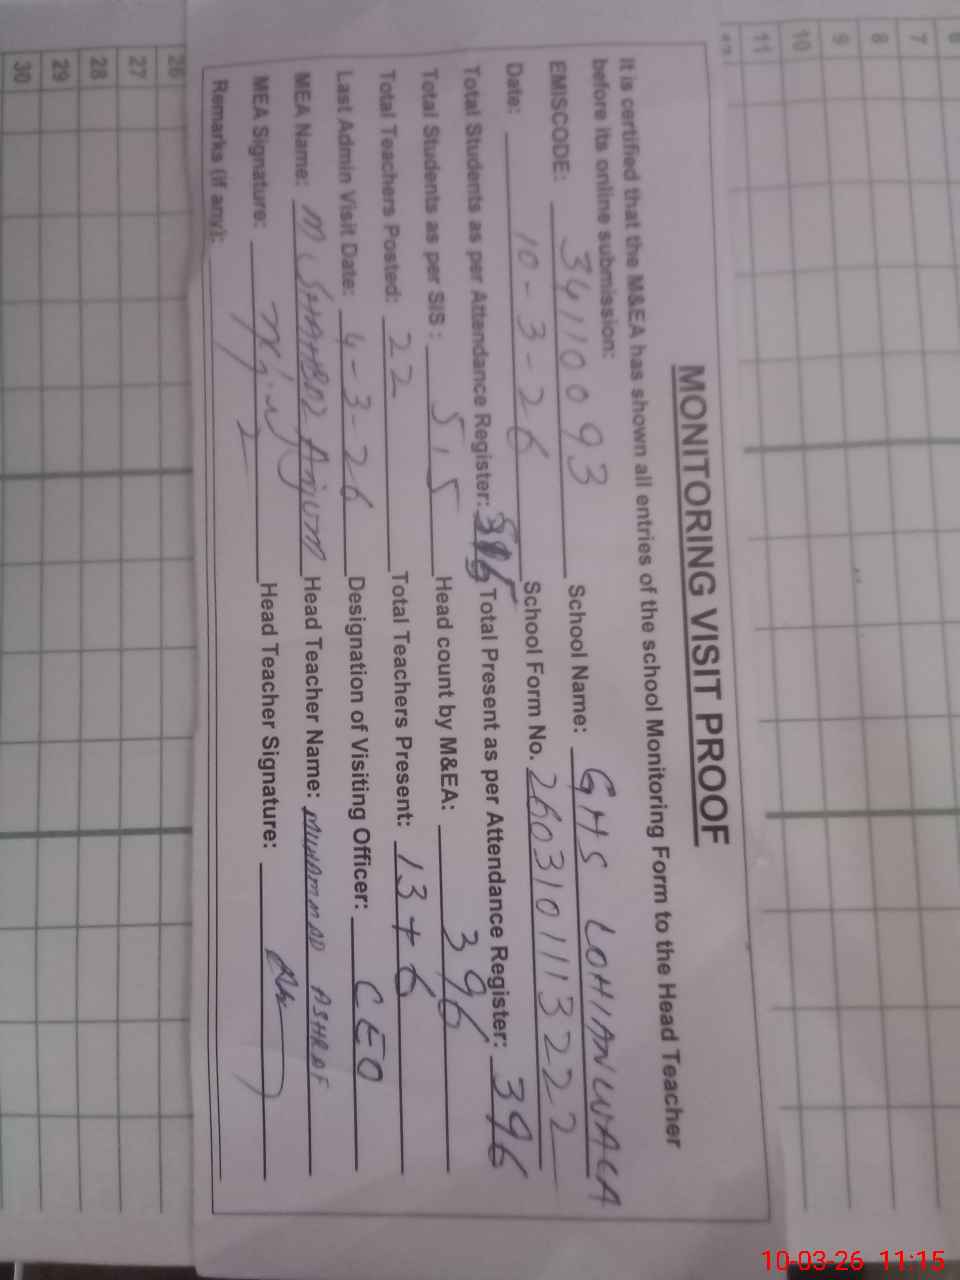 MONITORING VISIT PROOF
It is certified that the M&EA has shown all entries of the school Monitoring Form to the Head Teacher
before its online submission:
EMISCODE: 34110093 School Name: GHS LOHIANWALA
Date: 10-3-26 School Form No. 2603101113222
Total Students as per Attendance Register: Total Present as per Attendance Register: 396
Total Students as per SIS: 515 Head count by M&EA: 396
Total Teachers Posted: 22 Total Teachers Present: 13+6
Last Admin Visit Date: 4-3-26 Designation of Visiting Officer: CEO
MEA Name: M SHAHBAZ Anjum Head Teacher Name: MUHAMMAD ASHRAF
MEA Signature: Head Teacher Signature:
Remarks (if any):
6
7
8
9
10
11
26
27
28
29
30
10-03-26 11:15